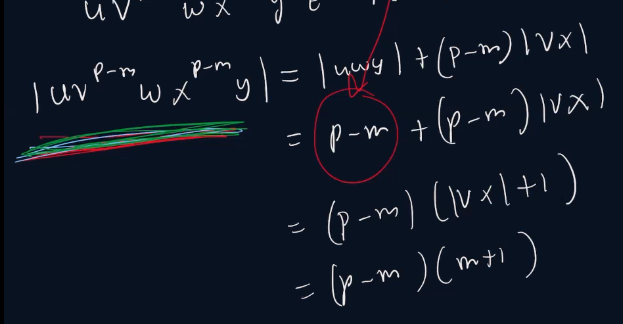 uv wx y z
|uv^{p-m} w x^{p-m} y| = |uwy| + (p-m)|vx|
= p-m + (p-m)|vx|
= (p-m)(|vx|+1)
= (p-m)(m+1)